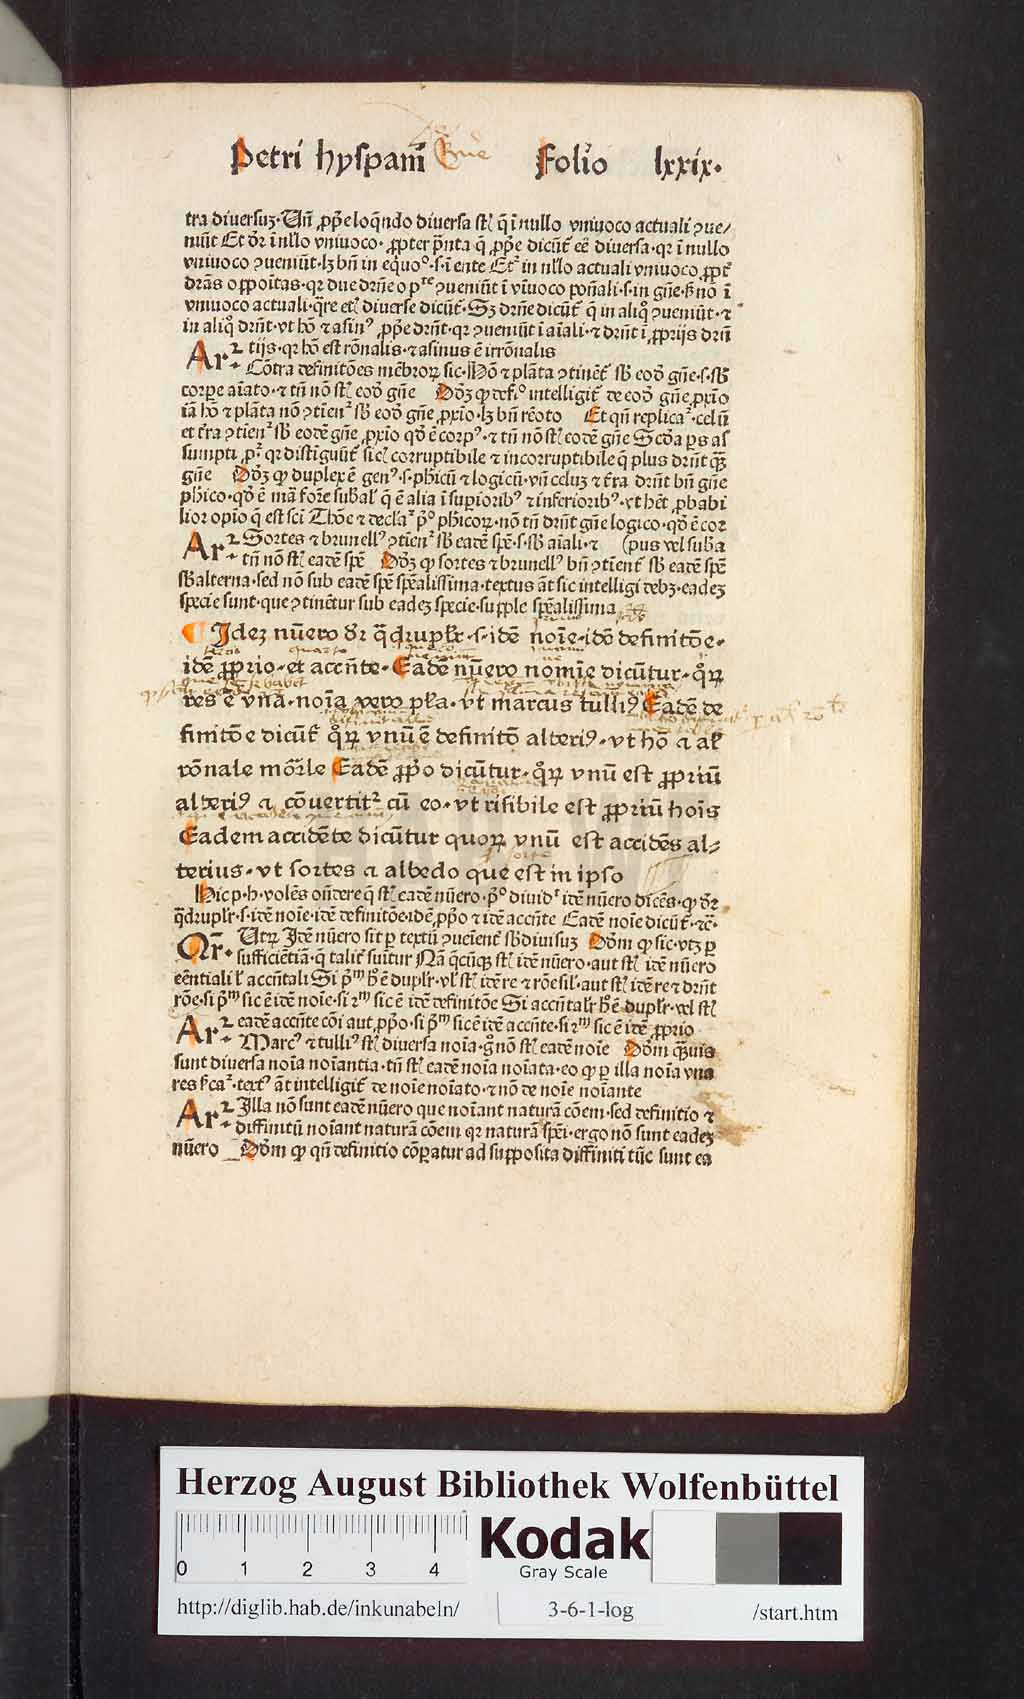 Petri hyspani Folio lxxix.
tra diuersuꝫ. Vn̄ ꝓpꝛ̄e loq̄ndo diuersa st̄ q̄ ī nullo vniuoco actuali ꝯue/
niūt Et dr̄ ī nl̄lo vniuoco. ꝓpter p̄nta q̄ ꝓpꝛ̄e dicūt̄ eē diuersa. qꝛ ī nullo
vniuoco ꝯueniūt. lꝫ bn̄ in equoͦ. s. ī ente Etꝰ in nl̄lo actuali vniuoco ꝓpt̄
dr̄as oppoītas. qꝛ due dr̄ne ꝯueniūt ī vīuoco pon̄ali. s. in gn̄e. s̄ nō ī
vniuoco actuali. q̄re et̄ diuerse dicūt̄. Sꝫ dr̄ne dicūt̄ q̄ in aliq̊ ꝯueniūt. ⁊
in aliq̊ dr̄nt. vt hō ⁊ asinꝰ ꝓpꝛ̄e dr̄nt. qꝛ ꝯueniūt ī aīali. ⁊ dr̄nt ī ꝓprijs dr̄n
tijs. qꝛ hō est rōnalis. ⁊ asinus ē irrōnalis
Ar². Cōtra definitōes mēbroꝝ sic. Hō ⁊ plāta ꝯtinēt̄ sb̄ eod̄ gn̄e. s. sb̄
corpꝛe aīato. ⁊ tn̄ nō st̄ eod̄ gn̄e Dōꝫ ꝙ defīͦ intelligit̄ de eod̄ gn̄e ꝓxīo
iā hō ⁊ plāta nō ꝯtīenꝰ sb̄ eod̄ gn̄e ꝓxīo. lꝫ bn̄ rēoto Et qn̄ replicaꝰ. celū
et t̄ra ꝯtīenꝰ sb̄ eodē gn̄e ꝓxīo qd̄ ē corpꝰ. ⁊ tn̄ nō st̄ eodē gn̄e Scd̄a ps as
sumpti pꝫ qꝛ distīguūt̄ sic̄ corruptibile ⁊ incorruptibile q̄ plus dr̄nt q̄ꝫ
gn̄e Dōꝫ ꝙ duplex ē genꝰ. s. phicū ⁊ logicū. vn̄ celuꝫ ⁊ t̄ra dr̄nt bn̄ gn̄e
phico. qd̄ ē mā foꝛ̄e sub̄al̄ q̄ ē alia ī supioribꝰ ⁊ inferioribꝰ. vt hēt ꝓbabi
lior opīo q̄ est sci Thōe ⁊ declaꝰ pͦ phicoꝝ. nō tn̄ dr̄nt gn̄e logico. qd̄ ē cor
Ar². Sortes ⁊ brunellꝰ ꝯtīenꝰ sb̄ eadē spē. s. sb̄ aīali. ⁊ (pus vel sub̄a
tn̄ nō st̄ eadē spē Dōꝫ ꝙ sortes ⁊ brunellꝰ bn̄ ꝯtīent̄ sb̄ eadē spē
sb̄alterna. sed nō sub eadē spē spālissima. textus āt sic intelligi debꝫ. eadeꝫ
specie sunt. que ꝯtinētur sub eadeꝫ specie. supple spālissima
¶ Ideꝫ nūero dr̄ q̄drupl̄r. s. idē noīe. idē definitōe.
idē ꝓprio. et accn̄te. Eadē nūero nomīe dicūtur. qͦꝝ
res ē vna. noīa vero pl̄a. vt marcus tulliꝰ Eadē de
finitōe dicūt̄ qͦꝝ vnū ē definitō alteriꝰ. vt hō ⁊ al̄
rōnale mōr̄le Eadē ꝓpͦo dicūtur. qͦꝝ vnū est ꝓpriū
alteriꝰ ⁊ cōuertitꝰ cū eo. vt risibile est ꝓpriū hoīs
Eadem accidēte dicūtur quoꝝ vnū est accidēs al⸗
terius. vt sortes ⁊ albedo que est in ipso
Hic p. h. volēs ondere q̄ st̄ eadē nūero. pͦ diuidꝰ idē nūero dicēs. ꝙ dr̄
q̄drupl̄r. s. idē noīe. idē definitōe. idē ꝓpͦo ⁊ idē accn̄te Eadē noīe dicūt̄. ⁊c̄.
Qr̄. Vtꝝ Idē nūero sit p textū ꝯueīent̄ sb̄diuisuꝫ Dōm ꝙ sic. vtꝫ p
sufficiētiā. q̄ talit̄ suītur Nā q̄cūqꝫ st̄ idē nūero. aut st̄ idē nūero
eēntiali l̄ accn̄tali Si pͫ hͦ ē dupl̄r. vl̄ st̄ idē re ⁊ rōe sil̄. aut st̄ idē re ⁊ dr̄nt
rōe. si pͫ sic ē idē noīe. si 2ͫ sic ē idē definitōe Si accn̄tal̄r hͦ ē dupl̄r. vel st̄
Ar². eadē accn̄te cōi aut ꝓpͦo. si pͫ sic ē idē accn̄te. si 2ͫ sic ē idē ꝓprio
Marcꝰ ⁊ tulliꝰ st̄ diuersa noīa. gͦ nō st̄ eadē noīe Dōm q̄ꝫuis
sunt diuersa noīa noīantia. tn̄ st̄ eadē noīa noīata. eo ꝙ p illa noīa vna
res s̄caꝰ. textꝰ āt intelligit̄ de noīe noīato. ⁊ nō de noīe noīante
Ar². Illa nō sunt eadē nūero que noīant naturā cōem. sed definitio ⁊
diffinitū noīant naturā cōem qꝛ naturā spēi. ergo nō sunt eadeꝫ
nūero Dōm ꝙ qn̄ definitio cōpatur ad supposita diffiniti tūc sunt ea
Herzog August Bibliothek Wolfenbüttel
0 1 2 3 4
Kodak
Gray Scale
http://diglib.hab.de/inkunabeln/ 3-6-1-log /start.htm